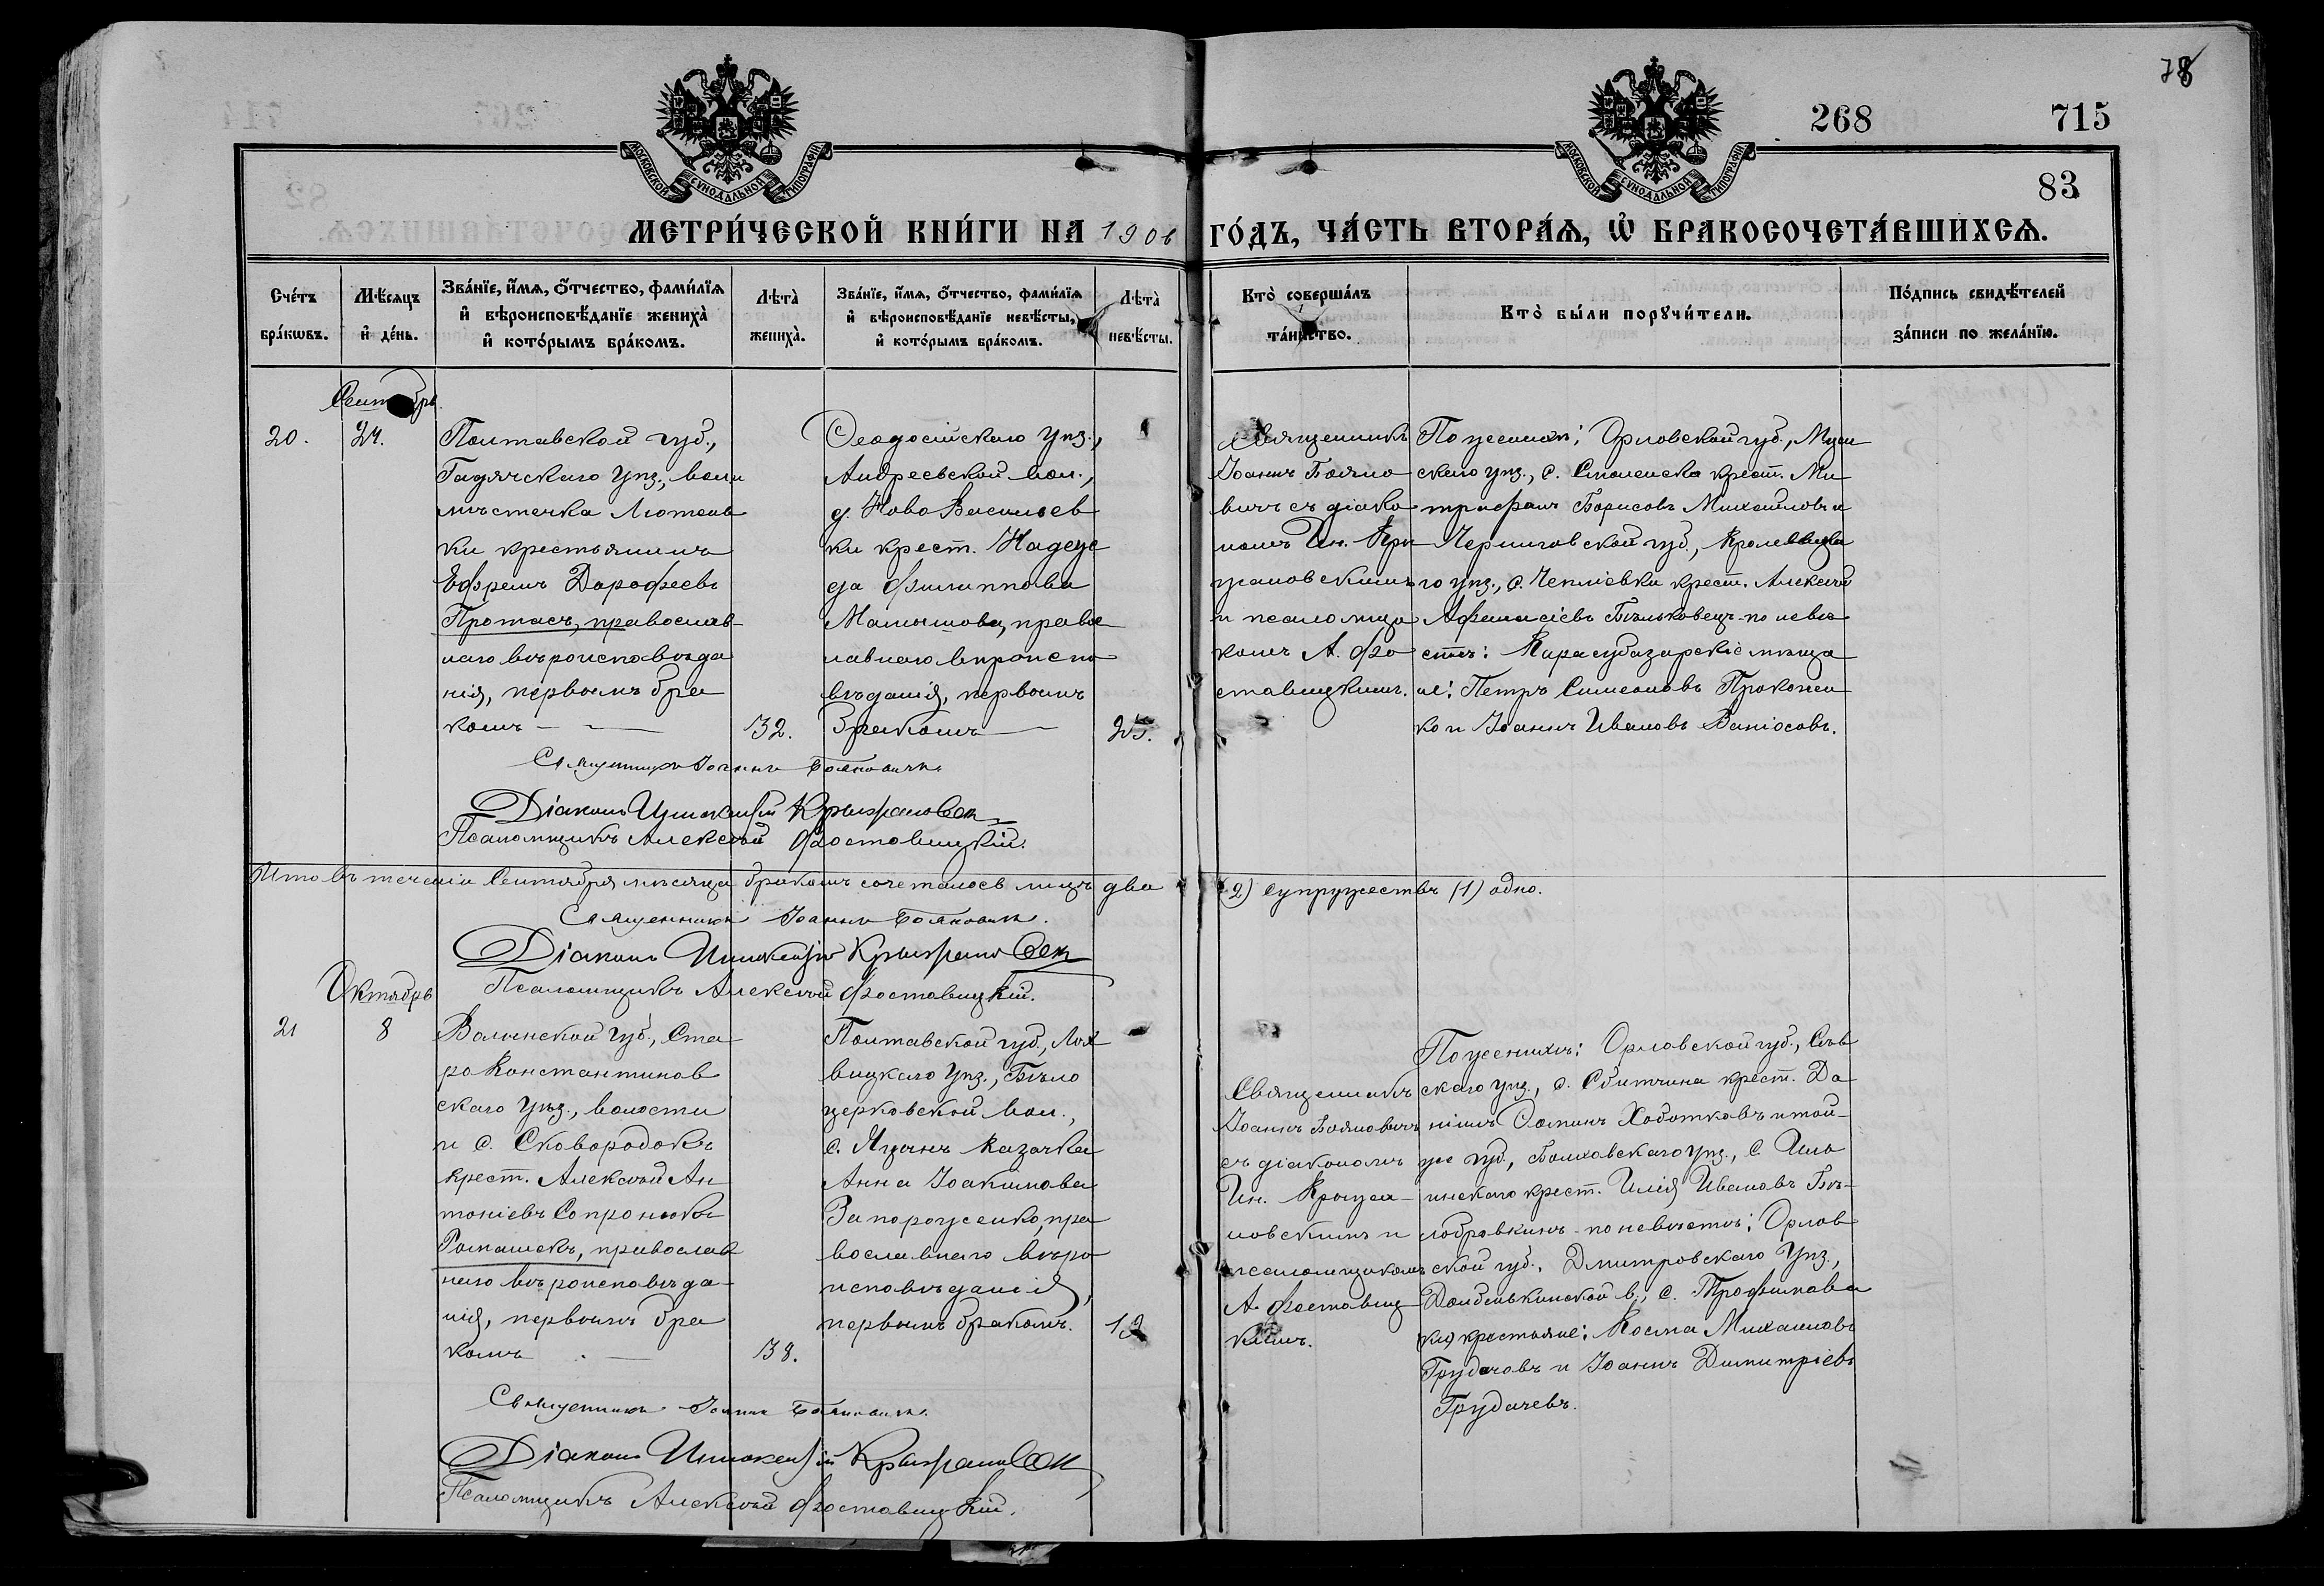 78
268 715
83
МОСКОВСКОЙ СѴНОДАЛЬНОЙ ТИПОГРАФІИ
МОСКОВСКОЙ СѴНОДАЛЬНОЙ ТИПОГРАФІИ
МЕТРИ́ЧЕСКОЙ КНИ́ГИ НА 1906 ГО́ДЪ, ЧА́СТЬ ВТОРА́Ѧ, Ѽ БРАКОСОЧЕТА́ВШИХСѦ.
Сче́тъ бра́кѡвъ.
Мѣ́сяцъ и де́нь.
Зва́нїе, и́мя, ѻ́тчество, фами́лїя и вѣроисповѣ́данїе жениха̀ и кото́рымъ бра́комъ.
Лѣта̀ жениха̀.
Зва́нїе, и́мя, ѻ́тчество, фами́лїя и вѣроисповѣ́данїе невѣ́сты, и кото́рымъ бра́комъ.
Лѣта̀ невѣ́сты.
Кто̀ соверша́лъ та́инство.
Кто̀ бы́ли порꙋчи́тели.
По́дпись свидѣ́телей за́писи по жела́нїю.
Сентябрь
20.
24.
Полтавской губ.,
Гадячскаго уѣз., вол. и
мѣстечка Лютень
ки крестьянинъ
Ефремъ Дорофеевъ
Протасъ, православ-
наго вѣроисповѣда
нія, первымъ бра
комъ
32.
Ѳеодосійскаго уѣз.,
Андреевской вол.,
д. Ново Васильев
ки крест. Надеж
да Филиппова
Малышова, правос
лавнаго вѣроиспо
вѣданія, первымъ
бракомъ
25.
Священникъ
Іоаннъ Бояно
вичъ съ діако
номъ Ин. Кры
жановскимъ
и псаломщи
комъ А. Фо
ставицкимъ.
По женихѣ: Орловской губ., Мцен
скаго уѣз., с. Смоленска крест. Ми
трофанъ Борисовъ Михайловъ и
Черниговской губ., Кролевецка
го уѣз., с. Чеплієвки крест. Алексѣй
Афанасіевъ Бѣльковецъ - по невѣ
стѣ: Карасубазарскіе мѣща
не: Петръ Симеоновъ Прокопен
ко и Іоаннъ Ивановъ Ваніосовъ.
Священникъ Іоаннъ Бояновичъ
Діаконъ Иннокентій Крыжановск
Псаломщикъ Алексѣй Фоставицкій.
Итого въ теченіи Сентября мѣсяца бракомъ сочеталось лицъ два (2) супружествъ (1) одно.
Священникъ Іоаннъ Бояновичъ.
Діаконъ Иннокентій Крыжановск
Псаломщикъ Алексѣй Фоставицкій.
Октябрь
21
8
Волынской губ., Ста
ро Константинов
скаго уѣз., волости
и с. Сковородокъ
крест. Алексѣй Ан
тоніевъ Сопронюкъ
Ромашекъ, православ
наго вѣроисповѣда-
нія, первымъ бра
комъ
38.
Полтавской губ., Лох
вицкаго уѣз., Бѣло
церковской вол.,
с. Яцынъ казачка
Анна Іоакимова
Запороженко, пра
вославнаго вѣро
исповѣданія,
первымъ бракомъ.
19
Священникъ
Іоаннъ Бояновичъ
съ діакономъ
Ин. Крыжа-
новскимъ и
псаломщикомъ
А. Фоставиц
кимъ.
По женихѣ: Орловской губ., Сѣв
скаго уѣз., с. Сбитчина крест. Да
ніилъ Ѳоминъ Хоботковъ и той-
же губ., Болховскаго уѣз., с. Иль
инскаго крест. Илія Ивановъ Бѣ-
лобровкинъ - по невѣстѣ: Орлов
ской губ., Дмитровскаго уѣз.,
Долбенькинской в., с. Трофимова
кія крестьяне: Косма Михаиловъ
Грудачовъ и Іоаннъ Димитріевъ
Грудачевъ.
Священникъ Іоаннъ Бояновичъ.
Діаконъ Иннокентій Крыжановск
Псаломщикъ Алексѣй Фоставицкій.